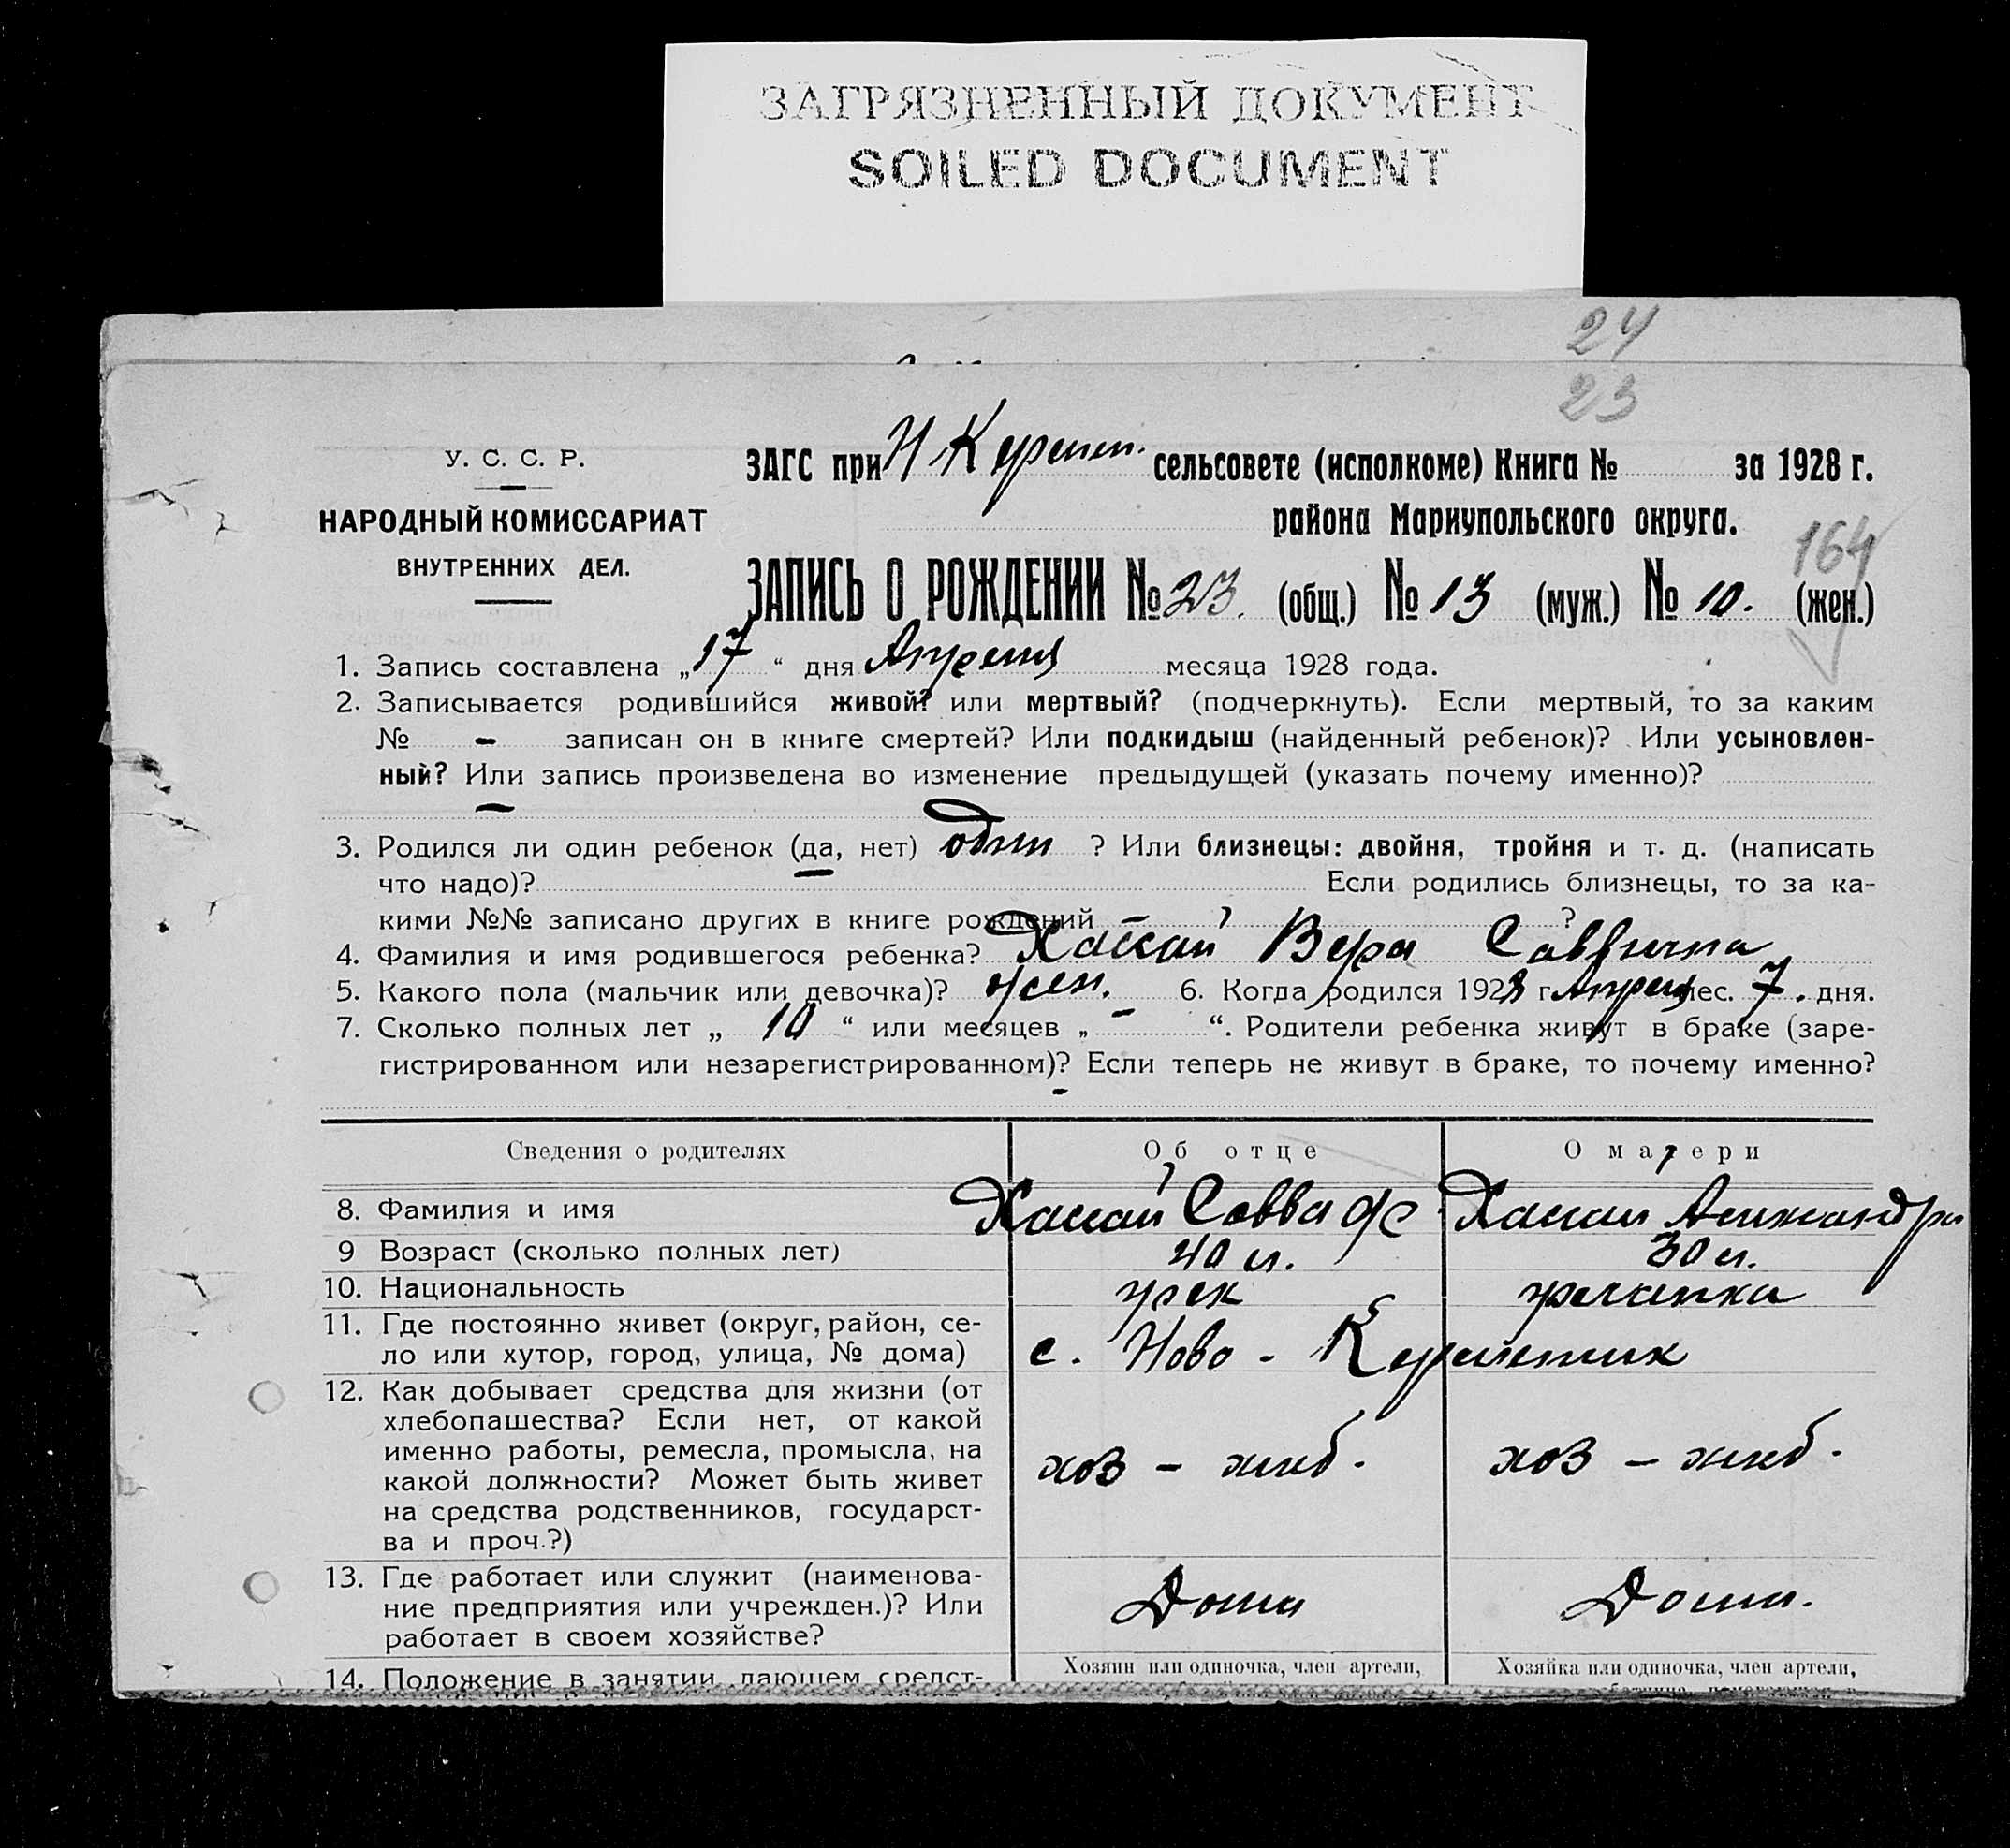 ЗАГРЯЗНЕННЫЙ ДОКУМЕНТ
SOILED DOCUMENT
24
23
У. С. С. Р.
НАРОДНЫЙ КОМИССАРИАТ
ВНУТРЕННИХ ДЕЛ.
ЗАГС при Н Кермен. сельсовете (исполкоме) Книга № за 1928 г.
района Мариупольского округа.
164
ЗАПИСЬ О РОЖДЕНИИ № 23. (общ.) № 13 (муж.) № 10. (жен.)
1. Запись составлена „17“ дня Апреля месяца 1928 года.
2. Записывается родившийся живой? или мертвый? (подчеркнуть). Если мертвый, то за каким
№ - записан он в книге смертей? Или подкидыш (найденный ребенок)? Или усыновлен-
ный? Или запись произведена во изменение предыдущей (указать почему именно)?
—
3. Родился ли один ребенок (да, нет) один ? Или близнецы: двойня, тройня и т. д. (написать
что надо)? Если родились близнецы, то за ка-
кими №№ записано других в книге рождений — ?
4. Фамилия и имя родившегося ребенка? Вера Саввична
5. Какого пола (мальчик или девочка)? жен. 6. Когда родился 1928 г. Апреля мес. 7. дня.
7. Сколько полных лет „ 10 “ или месяцев „ — “. Родители ребенка живут в браке (заре-
гистрированном или незарегистрированном)? Если теперь не живут в браке, то почему именно?
-
Сведения о родителях Об отце О матери
8. Фамилия и имя Савва Александра
9 Возраст (сколько полных лет) 40 л. 30 л.
10. Национальность грек гречанка
11. Где постоянно живет (округ, район, се-
ло или хутор, город, улица, № дома) с. Ново - Керменчик
12. Как добывает средства для жизни (от
хлебопашества? Если нет, от какой
именно работы, ремесла, промысла, на
какой должности? Может быть живет
на средства родственников, государст-
ва и проч.?)
хоз - хлеб. хоз - хлеб.
13. Где работает или служит (наименова-
ние предприятия или учрежден.)? Или
работает в своем хозяйстве?
Дома Дома.
14. Положение в занятии, дающем средст-
Хозяин или одиночка, член артели, Хозяйка или одиночка, член артели,